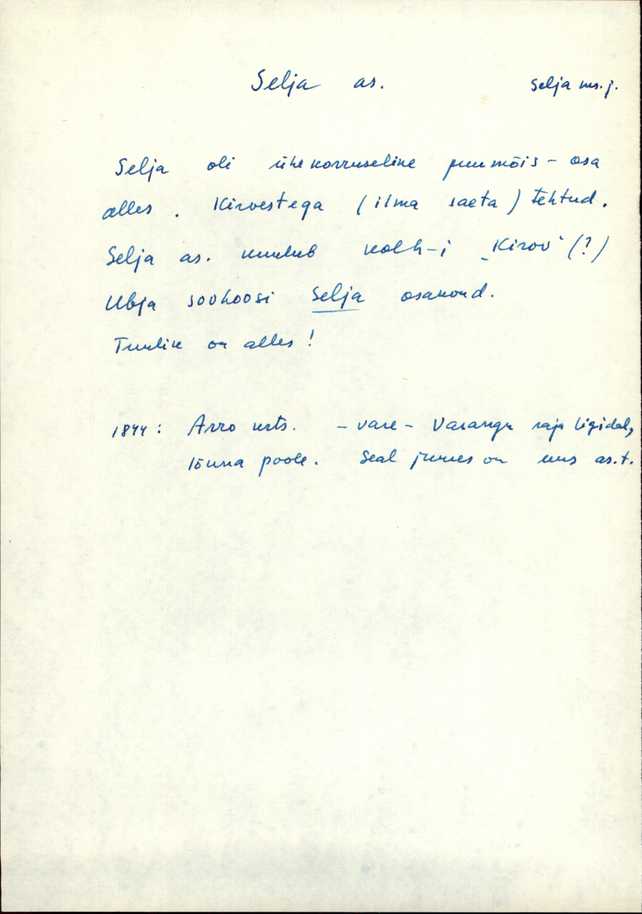 Selja as. Selja ms. j.
Selja oli ühekorruseline puumõis - osa
alles. Kirvestega (ilma saeta) tehtud.
Selja as. kuulub kolh-i "Kirov" (?)
Ubja sovhoosi Selja osakond.
Tuulik on alles!
1844: Arro krts. - vare - Varangu raja ligidal,
lõuna poole. Seal juures on uus as. t.